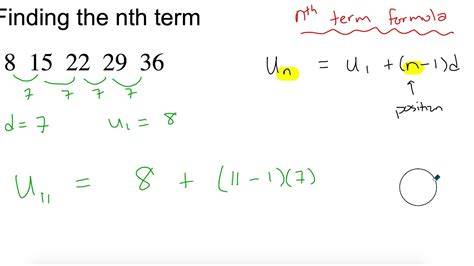 Finding the nth term
nth term formula
8 15 22 29 36
7 7 7 7
uₙ = u₁ + (n-1)d
position
d = 7 u₁ = 8
u₁₁ = 8 + (11-1)(7)